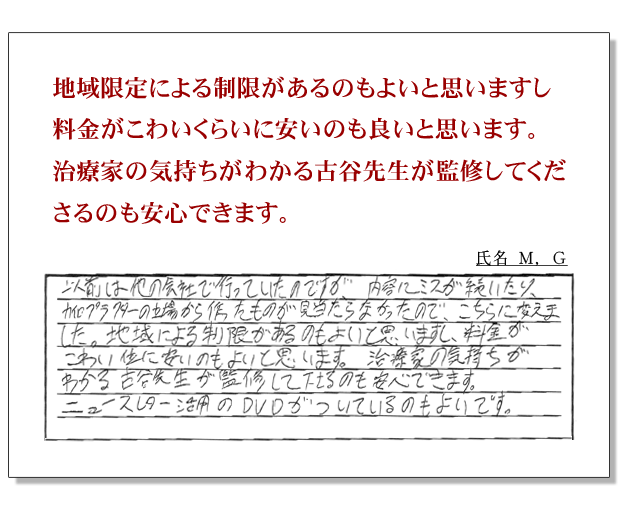 地域限定による制限があるのもよいと思いますし
料金がこわいくらいに安いのも良いと思います。
治療家の気持ちがわかる古谷先生が監修してくだ
さるのも安心できます。
氏名 M．G
以前は他の会社で行っていたのですが、内容にミスが続いたり、
カイロプラクターの立場から作ったものが見当たらなかったので、こちらに変えま
した。地域による制限があるのもよいと思いますし、料金が
こわい位に安いのもよいと思います。治療家の気持ちが
わかる古谷先生が監修して下さるのも安心できます。
ニュースレター活用のDVDがついているのもよいです。